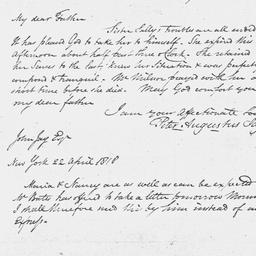 My dear Father
Sister Sally's troubles are all ended
It has pleased God to take her to himself. She expired this
afternoon about half past three o'clock. She retained
her senses to the last, knew her situation & was perfectly
composed & tranquil. Mr. Wilson prayed with her a
short time before she died. May God comfort you
my dear father
I am your affectionate Son
Peter Augustus Jay
John Jay Esqr
New York 22 April 1818
Maria & Nancy are as well as can be expected
Mr. has offered to take a letter tomorrow Morn
I shall therefore send this by him instead of an
Express.